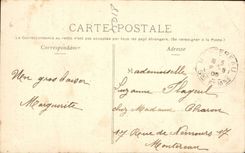 CARTE POSTALE
La Correspondance au recto n'est pas acceptée par tous les pays étrangers. (Se renseigner à la Poste)
Correspondance
Adresse
Un gros baiser
Marguerite
Mademoiselle
Suzanne
chez Madame
17 Rue de Nemours 17
Montereau